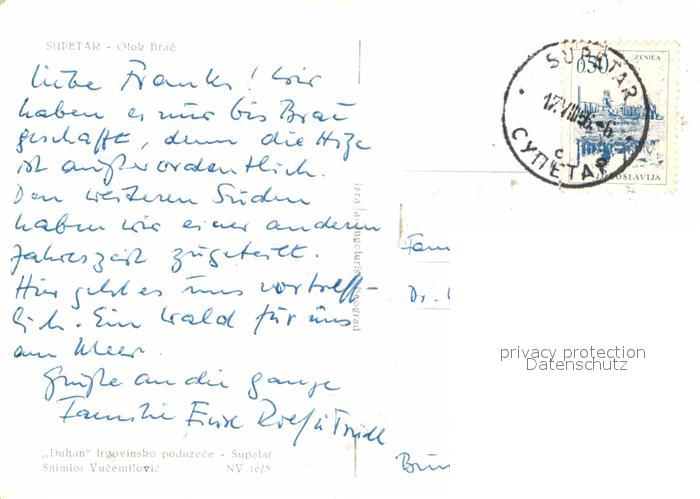 SUPETAR - Otok Brač
Liebe Franks! Wir
haben es nur bis Brač
geschafft, denn die Hitze
ist außerordentlich.
Den weiteren Süden
haben wir einer anderen
Jahreszeit zugeteilt.
Hier geht es uns vortreff-
lich. Ein Wald für uns
am Meer.
Grüße an die ganze
Familie Eure Rolf u Trudl
„Duhan" trgovinsko poduzeće - Supetar
Snimio: Vučemilović NV 16/3
Jugoturist Beograd
SUPETAR
17.VIII
СУПЕТАР
0,50
ZENICA
JUGOSLAVIJA
Fam
Dr.
privacy protection
Datenschutz